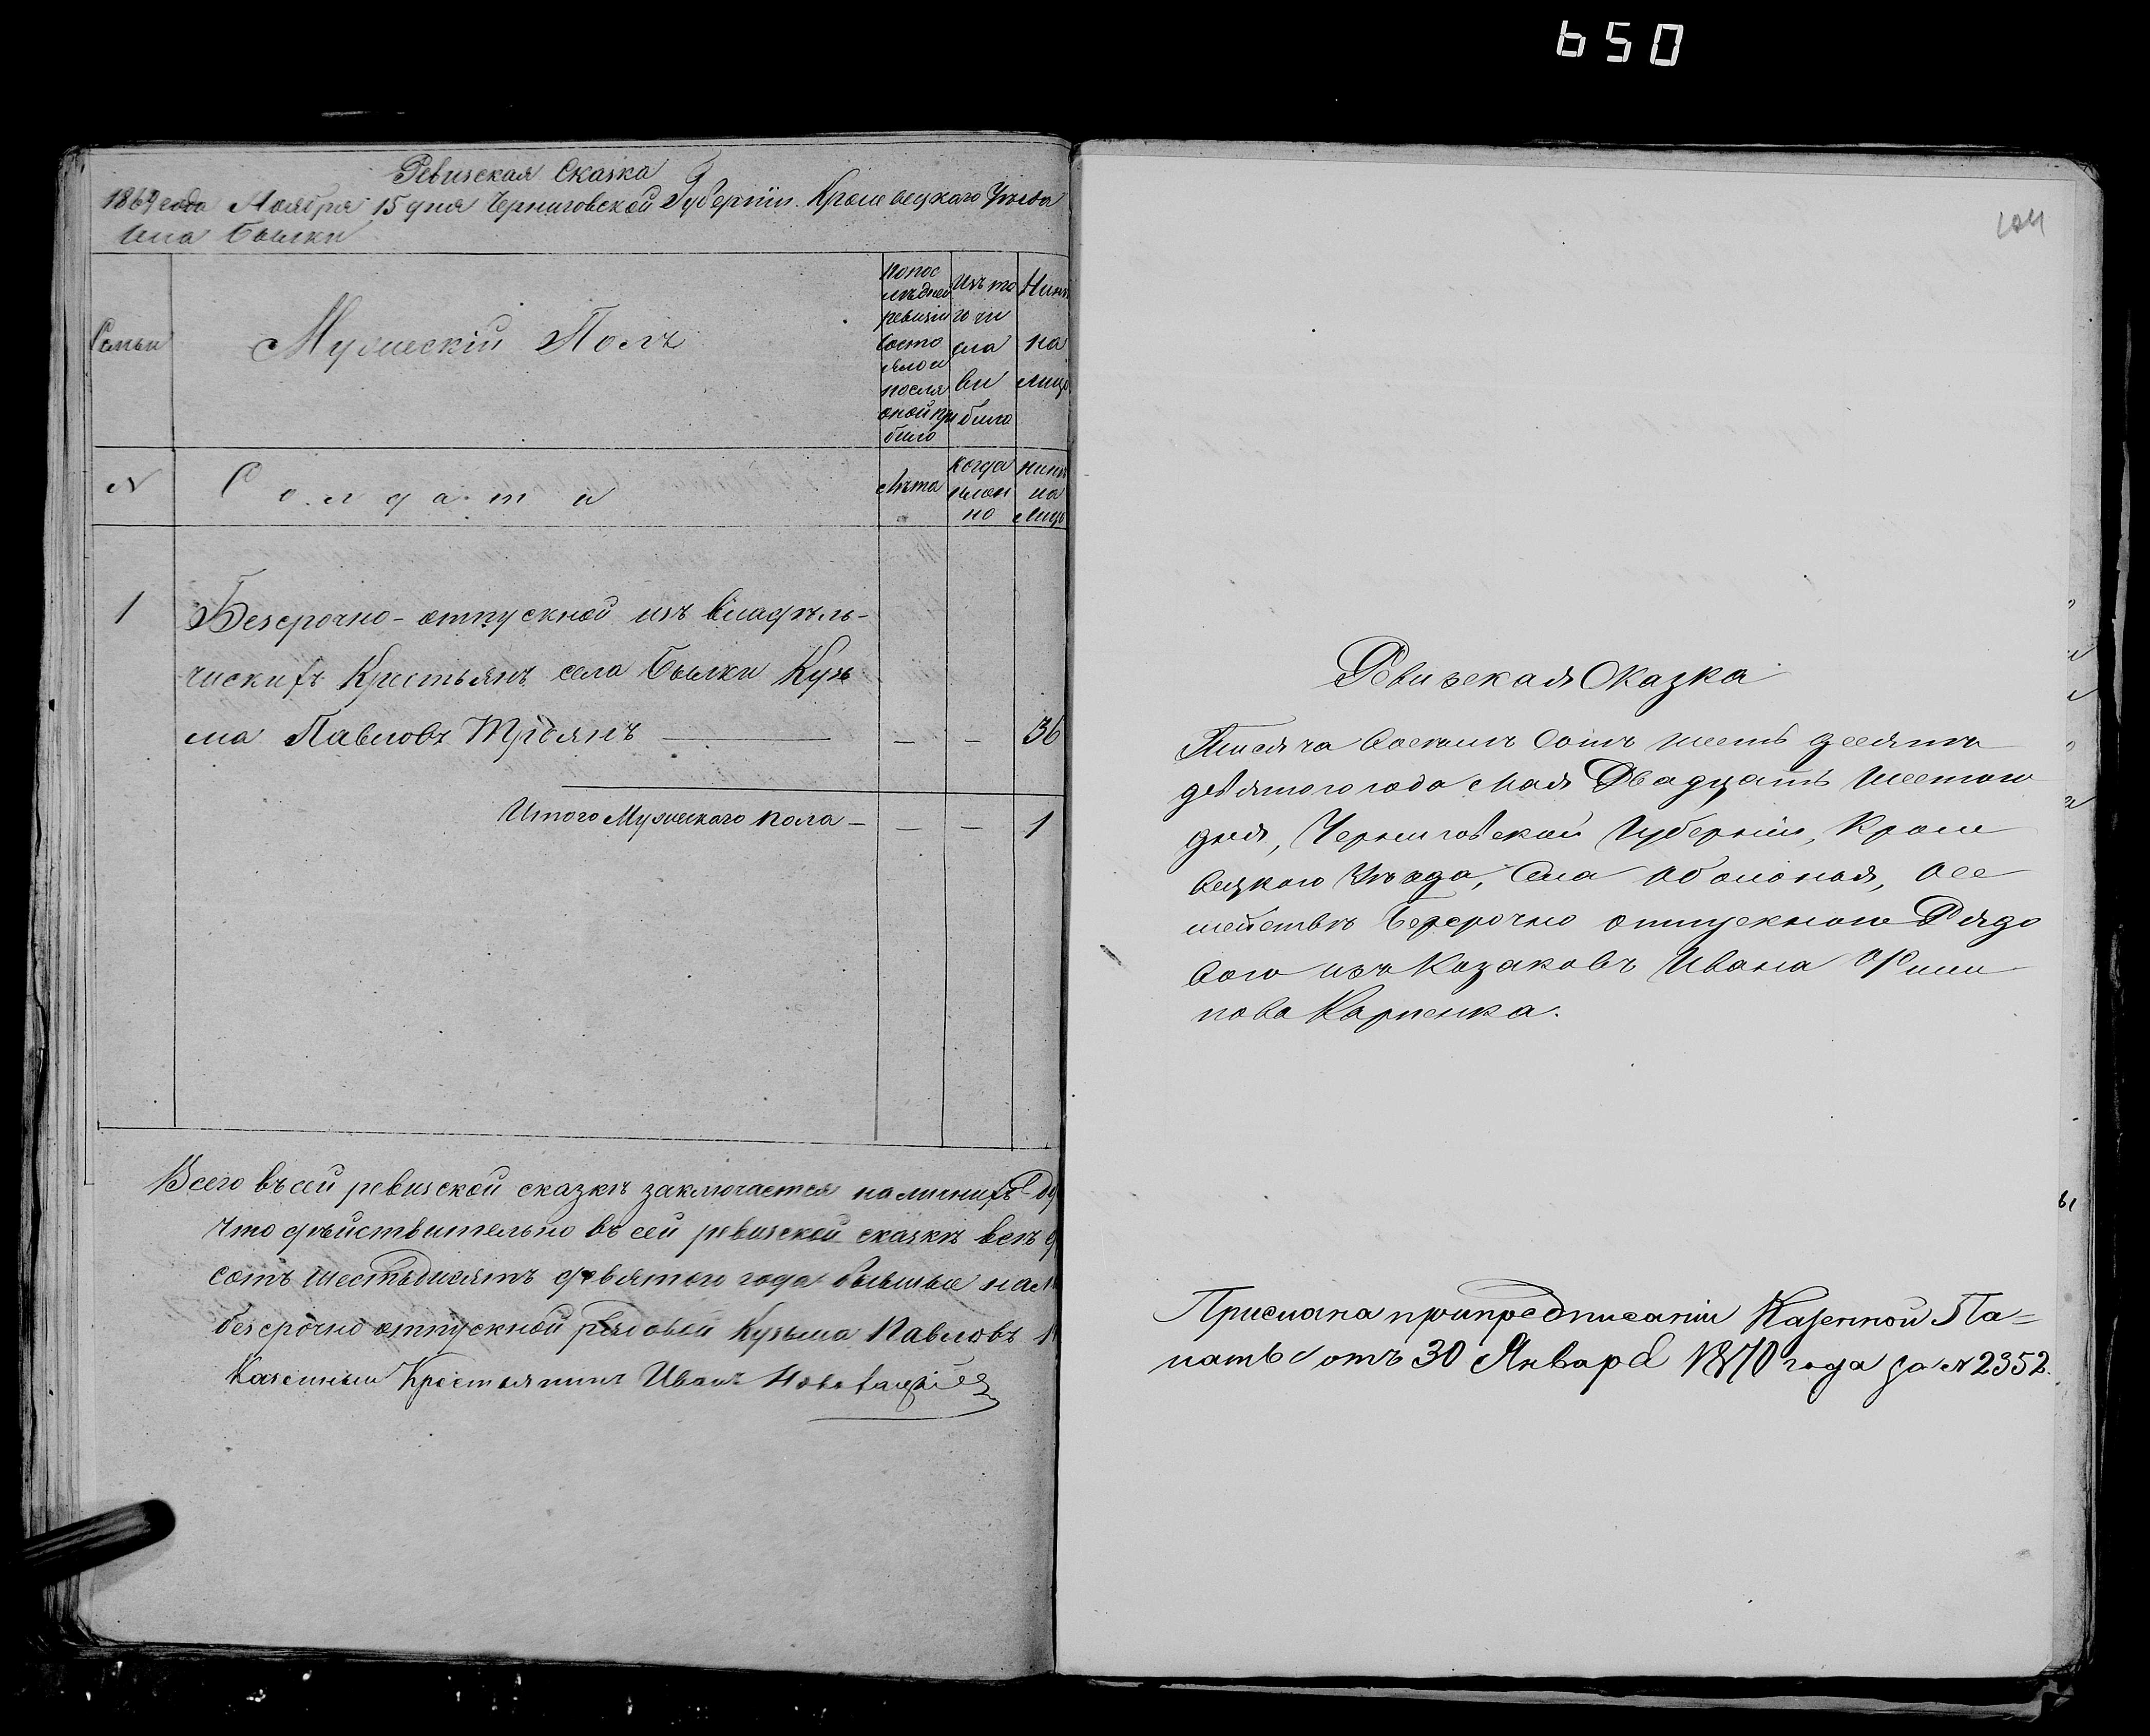 650
Ревизская Сказка
1869 года Ноября 15 дня Черниговской Губерніи Кролевецкаго Уѣзда
села Быстрики
Семьи
Мужескій Полъ
По пос
лѣдней
ревизіи
состо
яло и
послѣ
оной при
было
Изъ то
го чи
сла
вы
было
Нынѣ
на
лицо
N
Солдаты
Лѣта
когда
имен
но
нынѣ
на
лицо
1
Безсрочно-отпускной изъ владѣль-
ческихъ Крестьянъ села Кузь
ма Павловъ Троянъ — — — 36
Итого Мужескаго пола — — — 1
Всего въ сей ревизской сказкѣ заключается наличныхъ
Что дѣйствительно въ сей ревизской сказкѣ всѣ
сотъ шестьдесятъ девятого года бывшые на
безсрочно отпускной рядовой Кузьма Павловъ
Казенный Крестьянинъ Иванъ
104
Ревизская Сказка
Тысяча восемь сотъ шесть десятъ
девятого года Мая Двадцать шестого
дня, Черниговской Губерніи, Кроле
вецкого Уѣзда, Села Оболонья, о се
мействѣ безсрочно отпускного Рядо
вого изъ Казаковъ Ивана Фили
пова Карпенка.
Прислана при предписаніи Казенной Па=
латы отъ 30 Января 1870 года за N 2352.